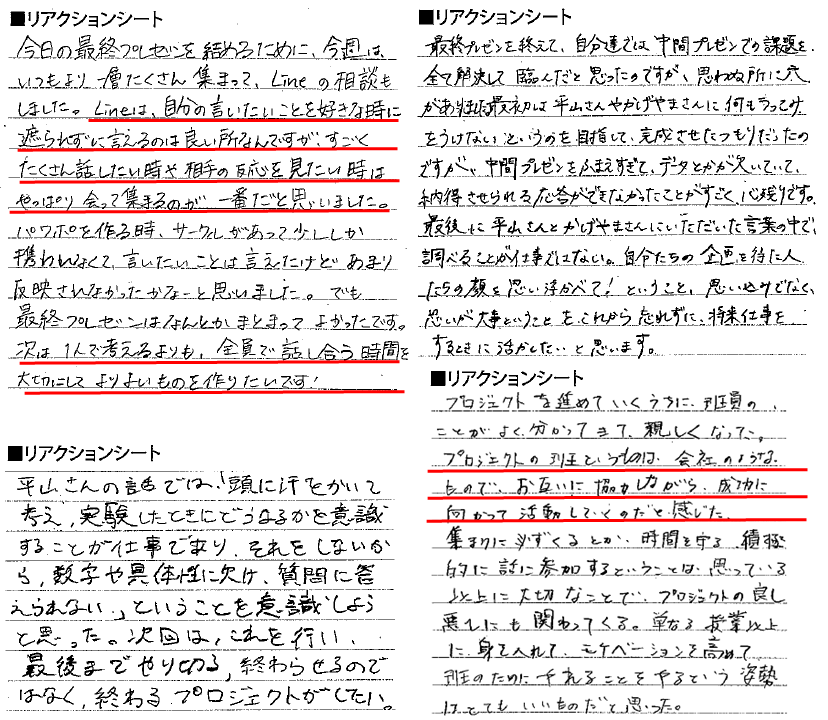 ■リアクションシート
今日の最終プレゼンを結めるために、今週は
いつもより一層たくさん集まって、Lineの相談も
しました。Lineは、自分の言いたいことを好きな時に
遮られずに言えるのは良い所なんですが、すごく
たくさん話したい時や相手の反応を見たい時は
やっぱり会って集まるのが一番だと思いました。
パワポを作る時、サークルがあって少ししか
携われなくて、言いたいことは言えたけどあまり
反映されなかったかなーと思いました。でも
最終プレゼンはなんとかまとまってよかったです。
次は1人で考えるよりも、全員で話し合う時間を
大切にしてよりよいものを作りたいです!
■リアクションシート
平山さんの話では、「頭に汗をかいて
考え、実験したときにどうなるかを意識
することが仕事であり、それをしないか
ら、数字や具体性に欠け、質問に答
えられない」ということを意識しよう
と思った。次回は、これを行い、
最後までやり切る、終わらせるので
はなく、終わるプロジェクトがしたい。
■リアクションシート
最終プレゼンを終えて、自分達では中間プレゼンでの課題を
全て解決して臨んだと思ったのですが、思わぬ所に穴
がありました。最初は平山さんやかげやまさんに何もつっこみ
をうけないというのを目指して、完成させたつもりだったの
ですが、中間プレゼンをふまえすぎて、データとかが欠いていて、
納得させられる応答ができなかったことがすごく心残りです。
最後に平山さんとかげやまさんにいただいた言葉の中で、
調べることが仕事ではない。自分たちの企画を待た人
たちの顔を思い浮かべて!ということ、思い込みでなく、
思いが大事ということをこれから忘れずに、将来仕事を
するときに活かしたいと思います。
■リアクションシート
プロジェクトを進めていくうちに、班員の
ことがよく分かってきて、親しくなった。
プロジェクトの班というものは、会社のような
もので、お互いに協力しながら、成功に
向かって活動していくのだと感じた。
集まりに必ずくるとか、時間を守る、積極
的に話に参加するということは、思っている
以上に大切なことで、プロジェクトの良し
悪しにも関わってくる。単なる授業以上
に身を入れて、モチベーションを高めて
班のためにやれることをやるという姿勢
はとてもいいものだと思った。